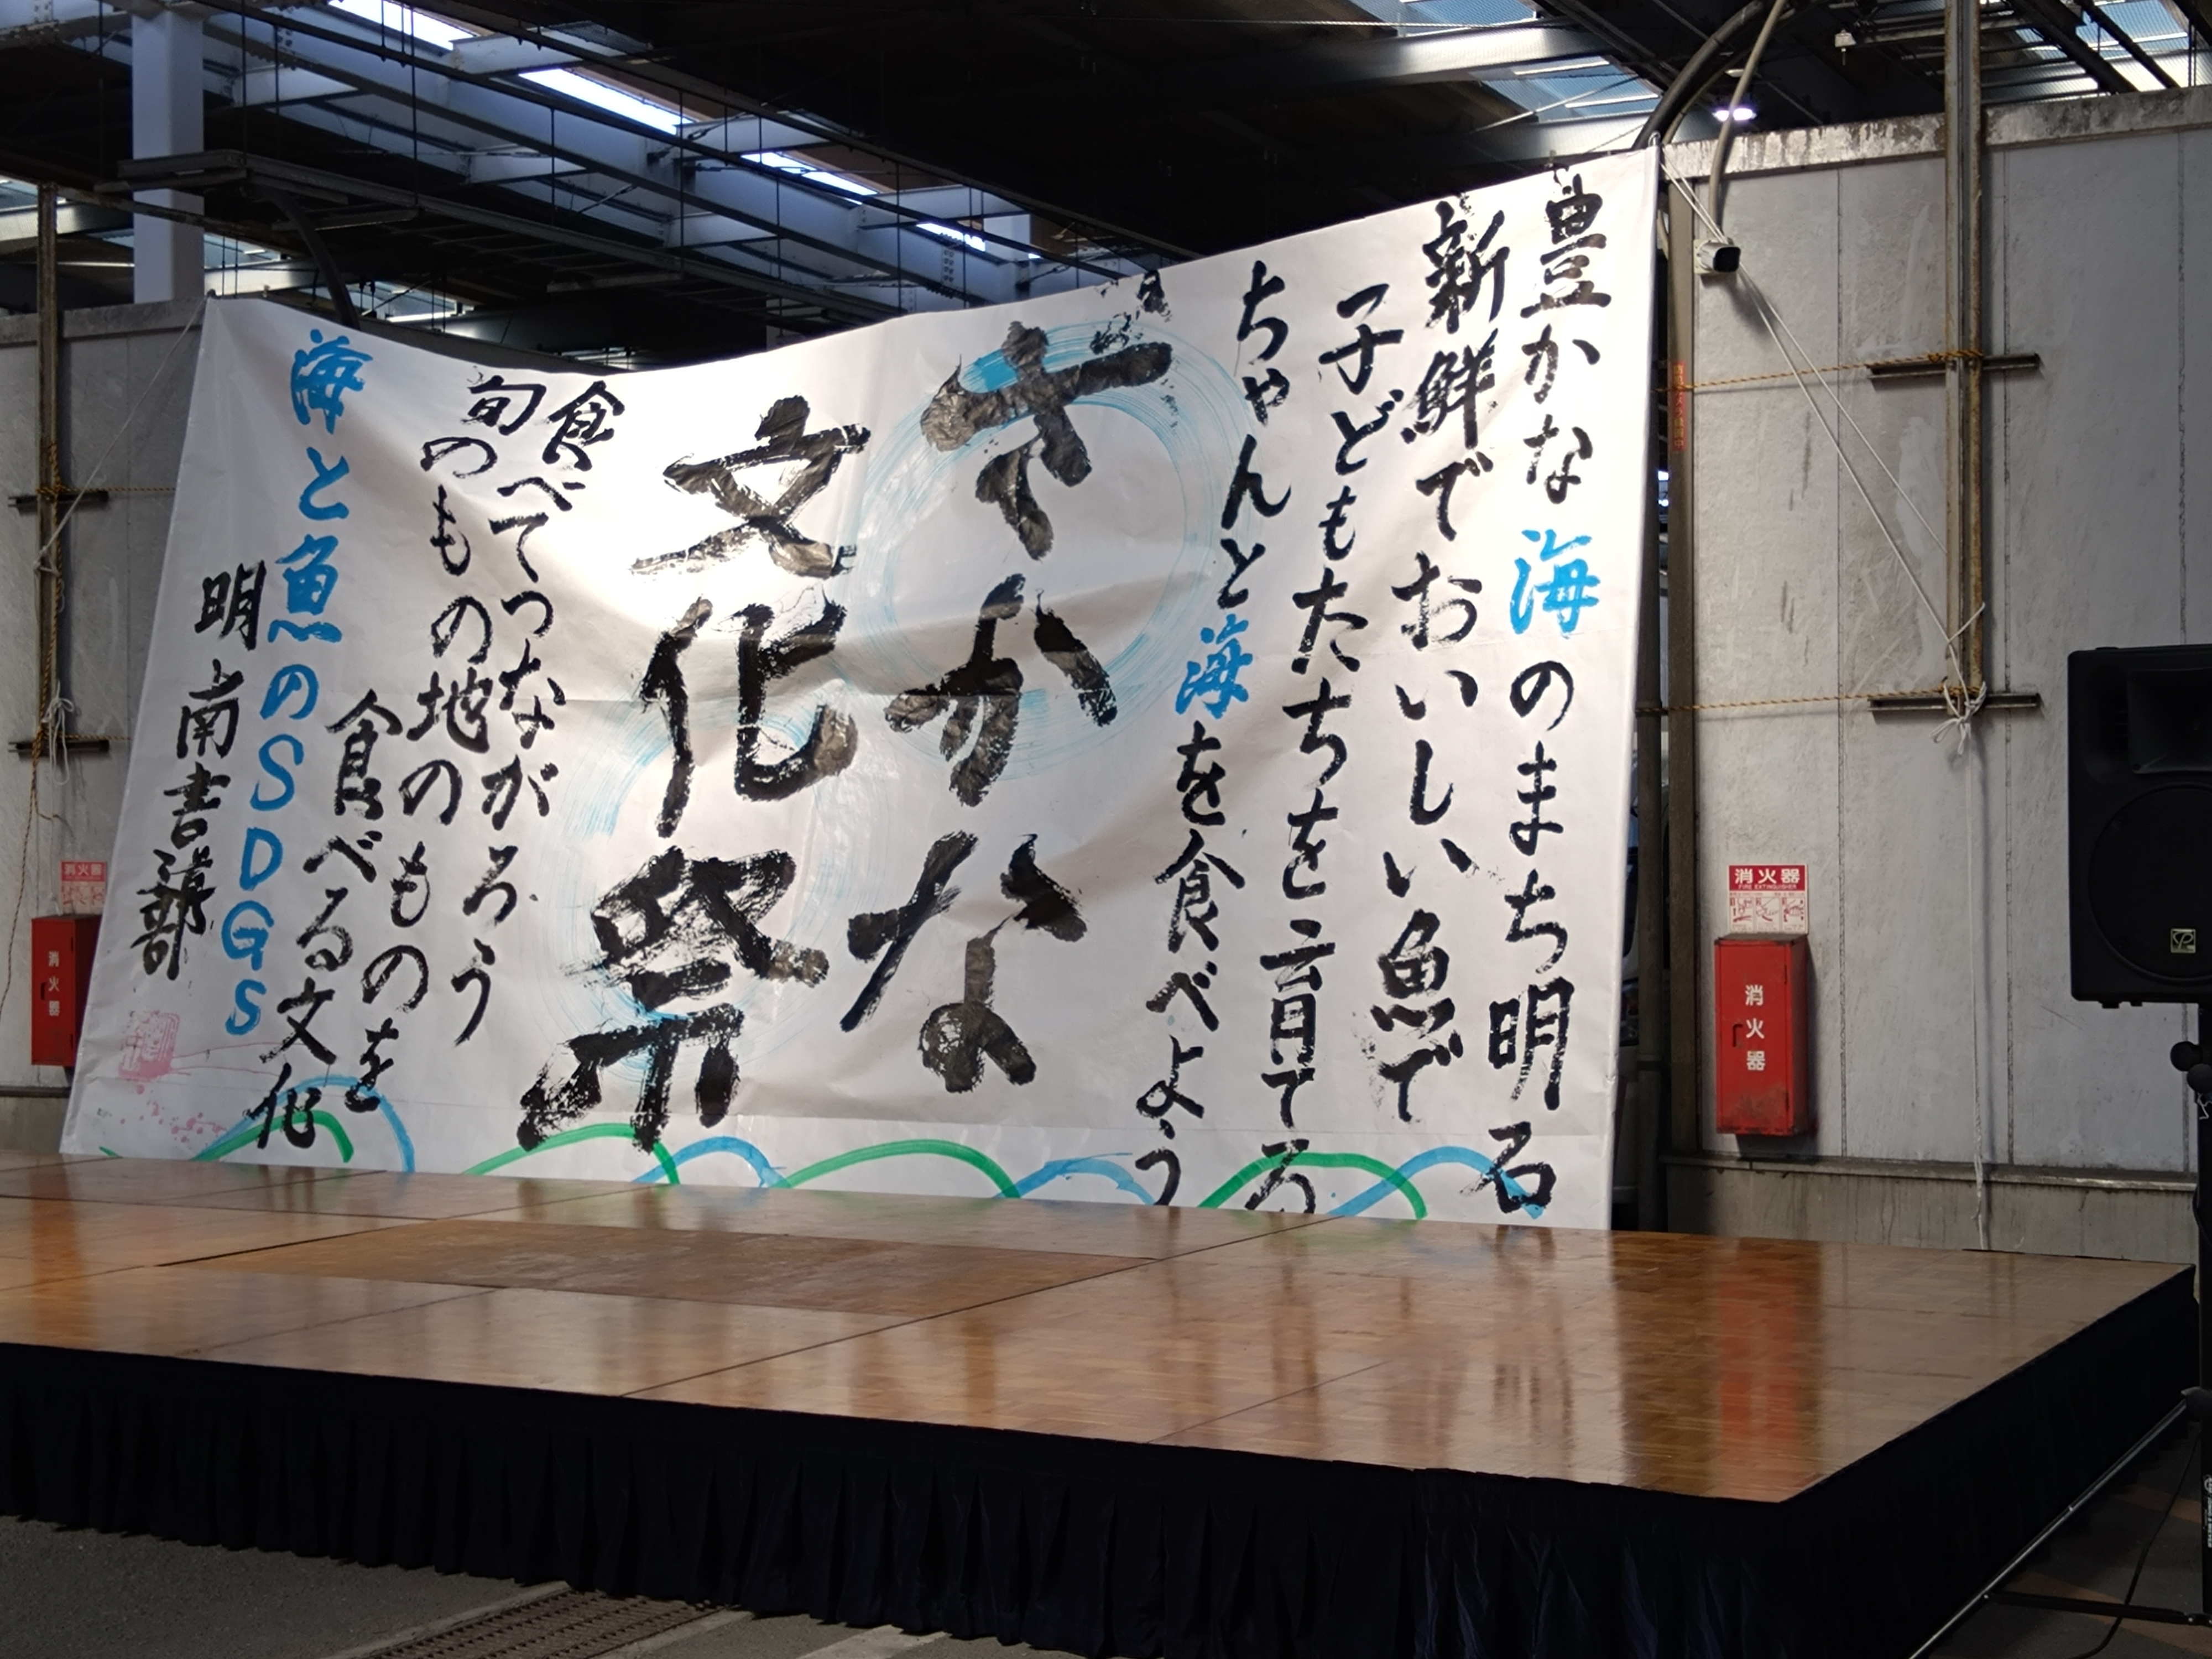 豊かな海のまち明石
新鮮でおいしい魚で
子どもたちを育てろ
ちゃんと海を食べよう
さかな
文化祭
食べてつながろう
旬のもの地のものを
食べる文化
海と魚のSDGs
明南書道部
消火器
FIRE EXTINGUISHER
消火器
消火器
消火器